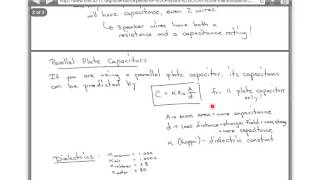 2 of 3
will have capacitance, even 2 wires
↳ speaker wires have both a
resistance and a capacitance rating!
Parallel Plate Capacitors
If you are using a parallel plate capacitor, its capacitance
can be predicted by
C = Kε₀ A/d
for 11 plate capacitor
only!
A → more area = more capacitance
d → less distance = stronger field =
= more capacitance
K (Kappa) - dielectric constant
Dielectrics -
K vacuum = 1.0000
K air = 1.0005
K rubber = 2.8
K water = 80